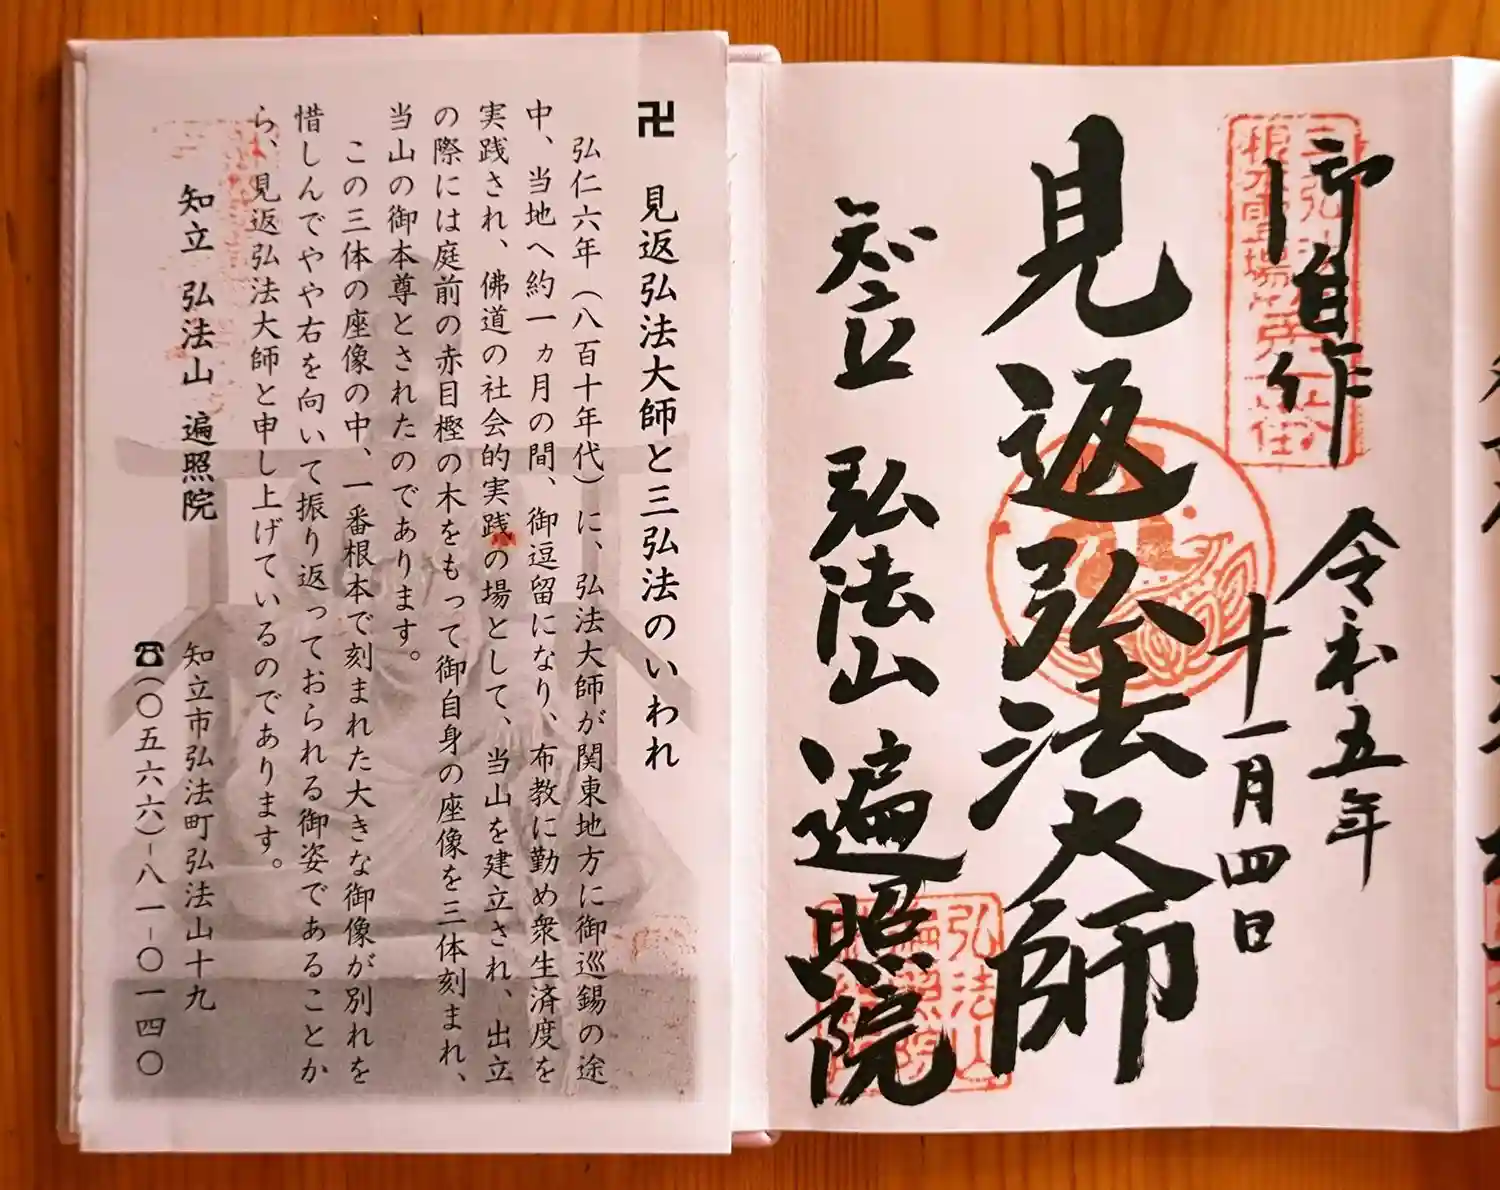 御自作
令和五年
十一月四日
見返弘法大師
知立 弘法山 遍照院
卍 見返弘法大師と三弘法のいわれ
弘仁六年(八百十年代)に、弘法大師が関東地方に御巡錫の途
中、当地へ約一ヵ月の間、御逗留になり、布教に勤め衆生済度を
実践され、佛道の社会的実践の場として、当山を建立され、出立
の際には庭前の赤目樫の木をもって御自身の座像を三体刻まれ、
当山の御本尊とされたのであります。
この三体の座像の中、一番根本で刻まれた大きな御像が別れを
惜しんでやや右を向いて振り返っておられる御姿であることか
ら、見返弘法大師と申し上げているのであります。
知立 弘法山 遍照院
知立市弘法町弘法山十九
☎(〇五六六)-八一-〇一四〇
弘法山
遍照院